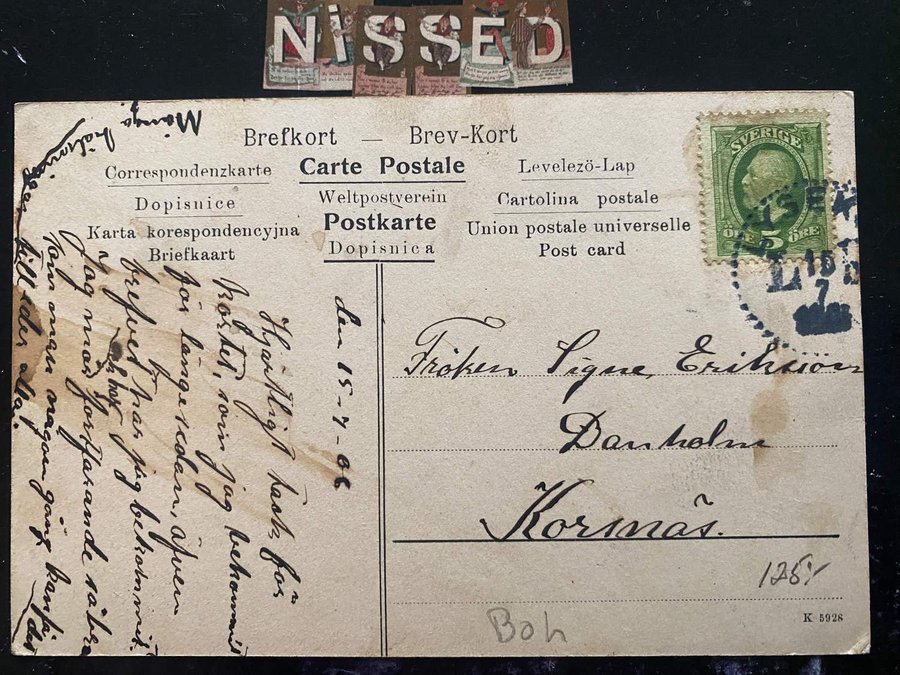 NISSED
Brefkort — Brev-Kort
Correspondenzkarte Carte Postale Levelező-Lap
Dopisnice Weltpostverein Cartolina postale
Karta korespondencyjna Postkarte Union postale universelle
Briefkaart Dopisnica Post card
SVERIGE
ÖRE 5 ÖRE
7
den 15-7-06
Hjärtligt tack för
kortet, som jag bekommit
för längesedan, äfven
brefvet har jag bekommit.
Jag mår fortfarande såbra
som man någon gång kan
Många hälsningar till der alla.
Fröken Signe Erikson
Danholm
Kornnäs.
125:-
Boh
K 5928